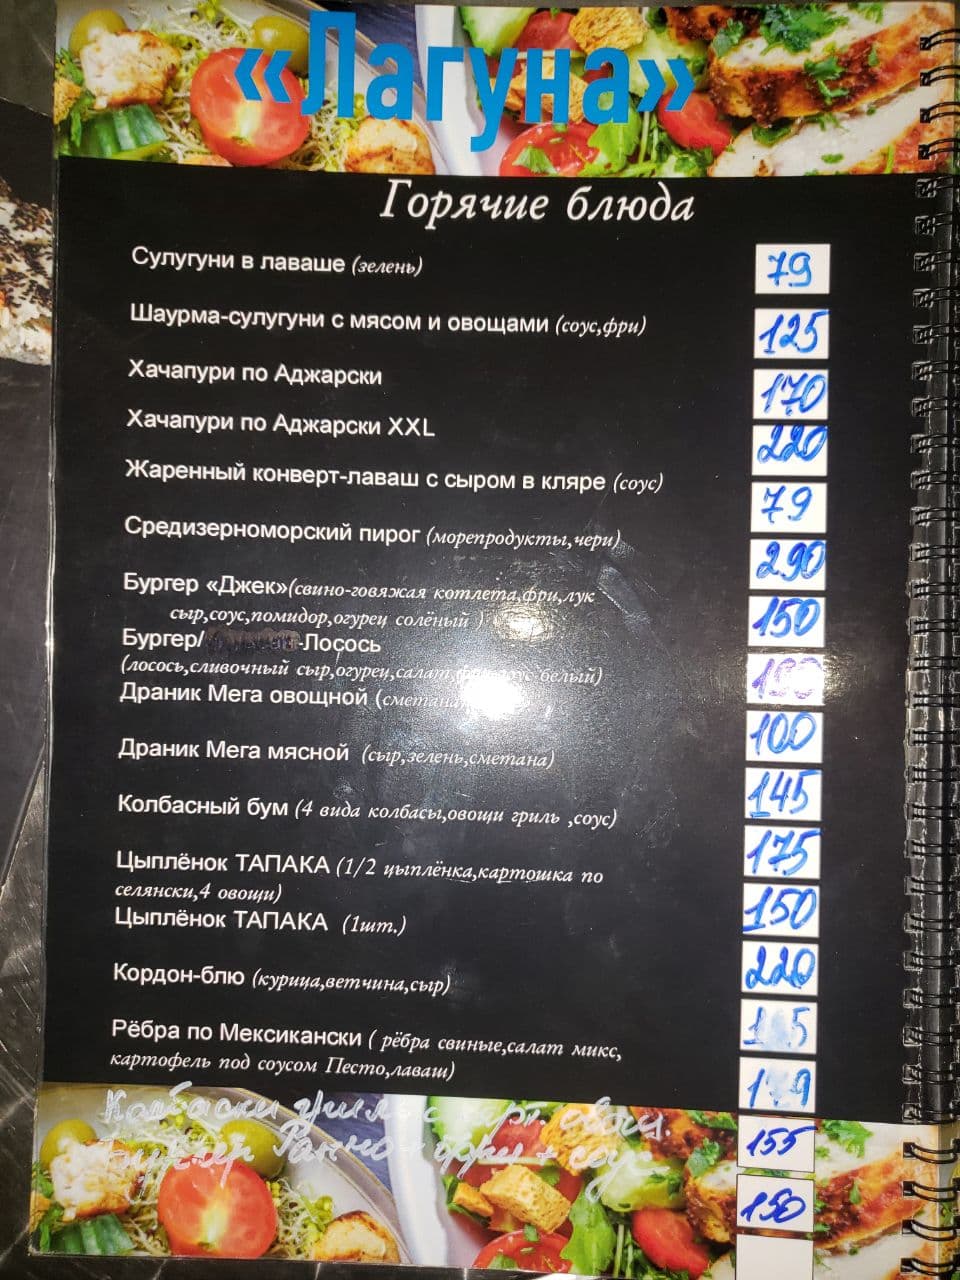 «Лагуна»
Горячие блюда
Сулугуни в лаваше (зелень) 79
Шаурма-сулугуни с мясом и овощами (соус,фри) 125
Хачапури по Аджарски 170
Хачапури по Аджарски XXL 220
Жаренный конверт-лаваш с сыром в кляре (соус) 79
Средизерноморский пирог (морепродукты,чери) 290
Бургер «Джек»(свино-говяжая котлета,фри,лук 150
сыр,соус,помидор,огурец солёный )
Бургер/ -Лосось
(лосось,сливочный сыр,огурец,салат, белый)
Драник Мега овощной (сметана 100
Драник Мега мясной (сыр,зелень,сметана) 145
Колбасный бум (4 вида колбасы,овощи гриль ,соус) 175
Цыплёнок ТАПАКА (1/2 цыплёнка,картошка по 150
селянски,4 овощи)
Цыплёнок ТАПАКА (1шт.) 220
Кордон-блю (курица,ветчина,сыр)
Рёбра по Мексикански ( рёбра свиные,салат микс,
картофель под соусом Песто,лаваш)
Колбаски гриль с карт. овощ. 155
Бургер Ранчо + фри + соус 150